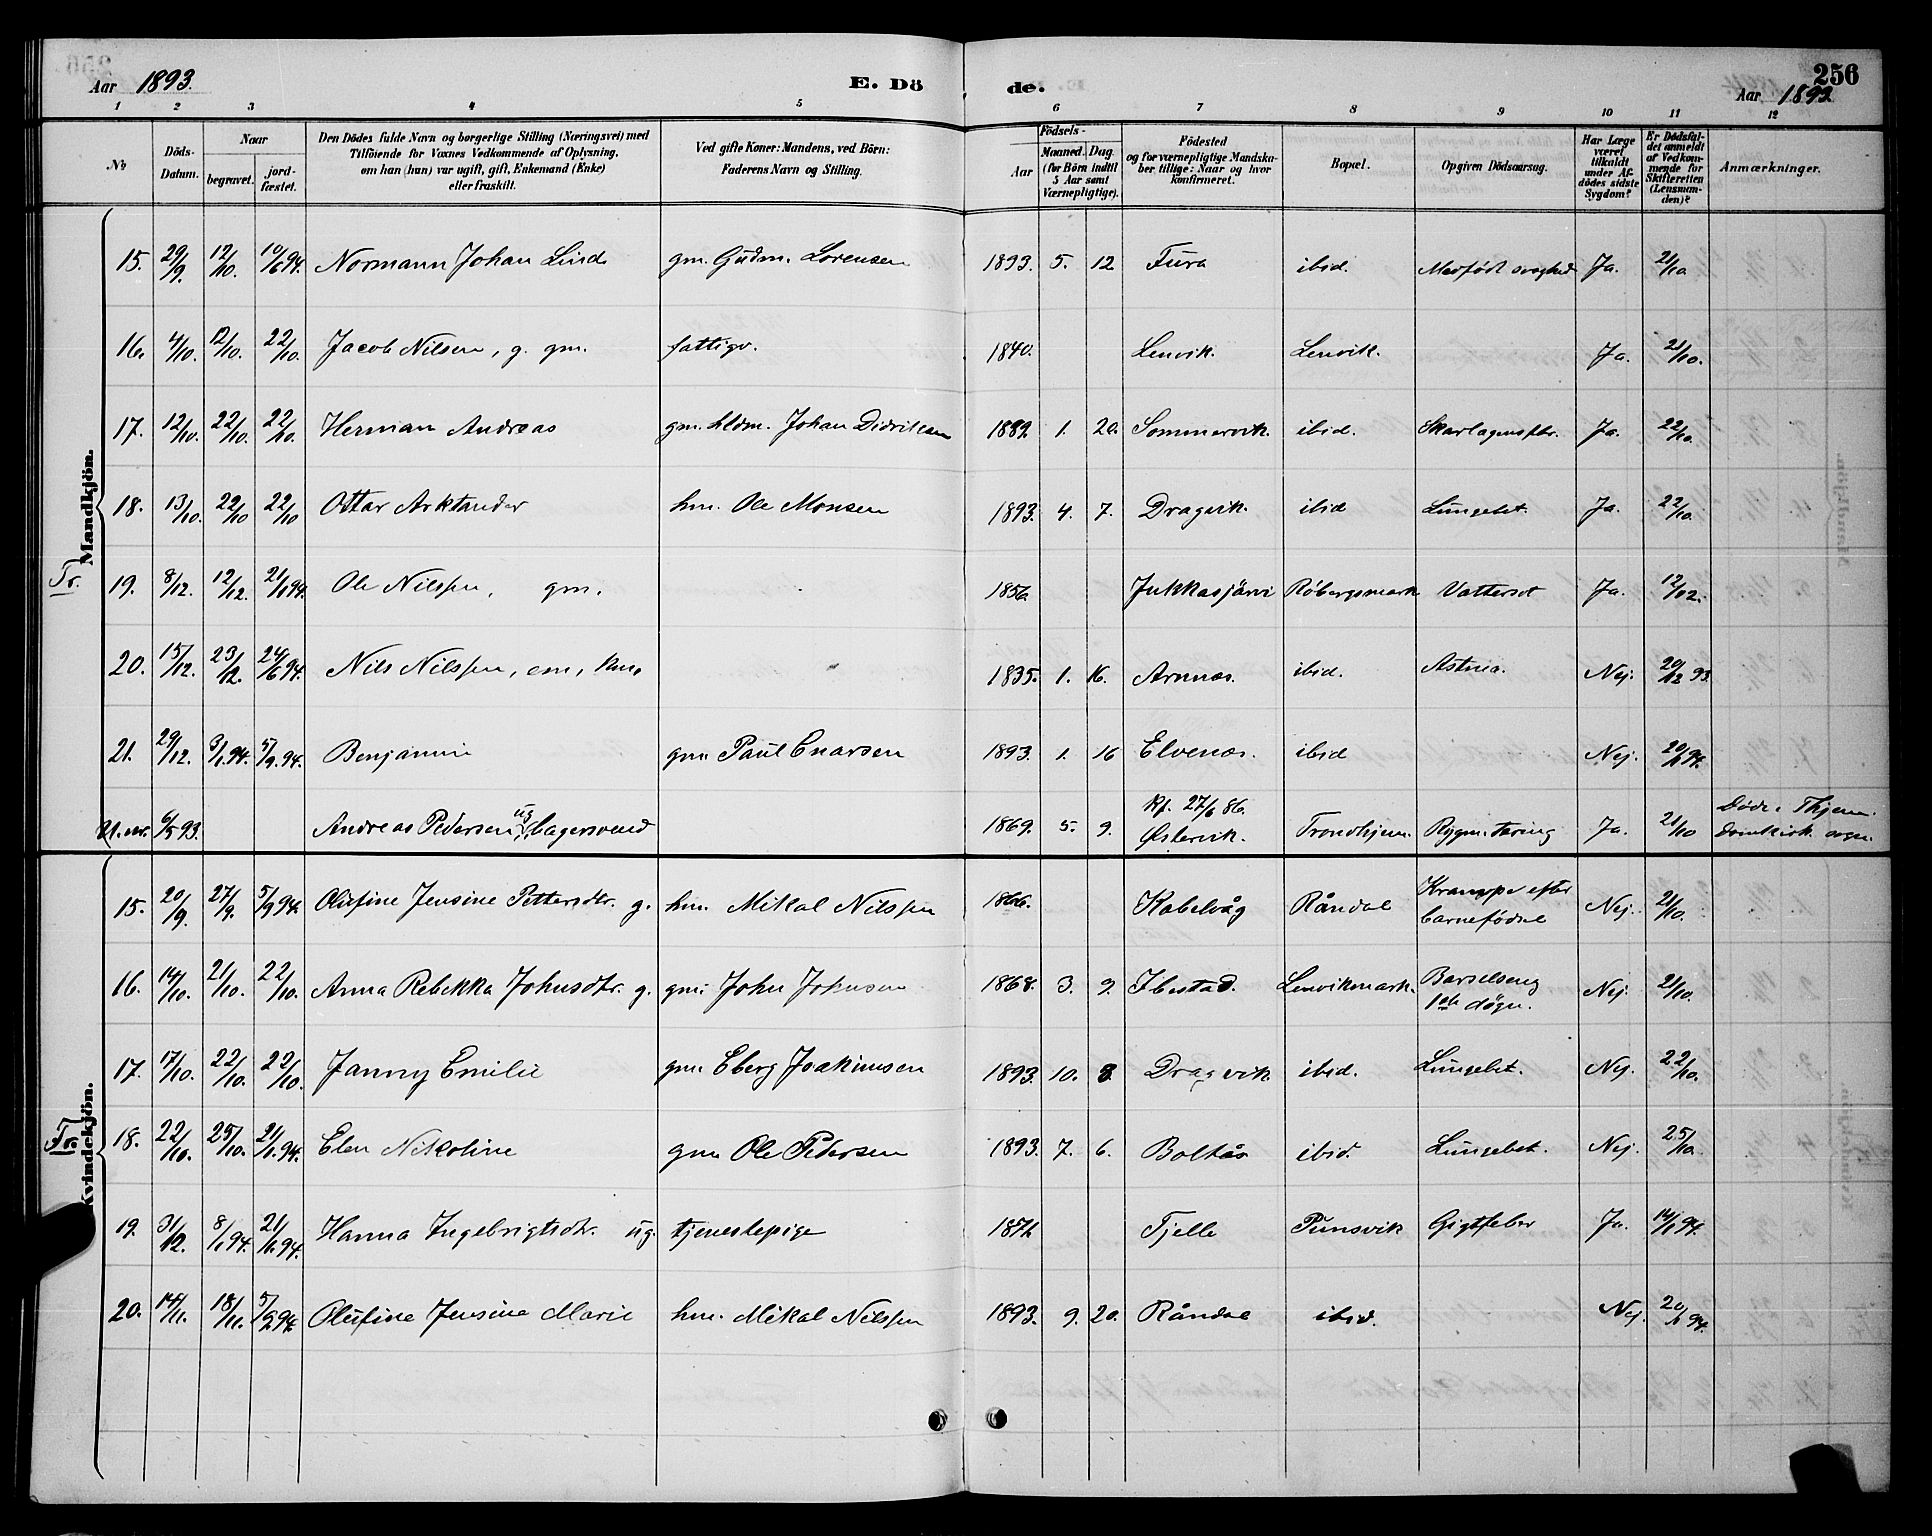 Aar 1893. E. Dö de. 256
Aar 1893.
1 2 3 4 5 6 7 8 9 10 11 12
No
Döds-Datum.
Naar
begravet.
jord-fæstet.
Den Dödes fulde Navn og borgerlige Stilling (Næringsvei) med
Tilföiende for Voxnes Vedkommende af Oplysning,
om han (hun) var ugift, gift, Enkemand (Enke)
eller fraskilt.
Ved gifte Koner: Mandens, ved Börn:
Faderens Navn og Stilling.
Födsels-
Aar
Maaned. Dag.
(for Börn indtil
5 Aar samt
Værnepligtige).
Födested
og for værnepligtige Mandska-
ber tillige: Naar og hvor
konfirmeret.
Bopæl.
Opgiven Dödsaarsag.
Har Læge
været
tilkaldt
under Af-
dödes sidste
Sygdom?
Er Dödsfal-
det anmeldt
af Vedkom-
mende for
Skifteretten
(Lensman-
den)?
Anmærkninger.
Mandkjön.
Tr.
15. 29/9. 12/10. 10/6 94. Normann Johan Lind gm. Gudm. Lorensen 1893. 5. 12 Fura ibid. Medfödt svaghed Ja. 21/10.
16. 4/10. 12/10. 22/10. Jacob Nilsen, g. gm. fattigv. 1840. Lenvik. Lenvik. Ja. 21/10.
17. 12/10. 22/10. 22/10. Herman Andreas gm. Johan Didriksen 1889. 1. 20. Sommervik. ibid. Skarlagensfbr. Ja. 22/10.
18. 13/10. 22/10 22/10 Ottar Arktander hm. Ole Monsen 1893. 4. 7. Dragvik. ibid Lungebet. Ja. 22/10.
19. 8/12. 12/12. 21/1 94. Ole Nilssen, gm. 1856 Jukkasjärvi Röbergsmark Vattersot Ja. 12/12.
20. 15/12. 23/12. 24/6 94. Nils Nilssen, em, 1835. 1. 16. Arnnæs. ibid. Astma. Nej. 20/12 93.
21. 29/12. 3/1 94. 5/9 94. Benjamin gm. Paul Enarsen 1893. 1. 16 Elvenæs. ibid Nej. 20/1 94.
U. nr. 6/5 93. Andreas Pedersen ug bagersvend 1869. 5. 9. Kf. 27/6 86. Østervik. Trondhjem. Rygm. tæring Ja. 21/10 Døde i Thjem. domkirk. sogn.
Kvindekjön.
15. 20/9. 27/9. 5/9 94. Olufine Jensine Pettersdtr. g. hm. Mikal Nilssen 1866. Kabelvåg Råndal Krampe efter barnefødsel Nej. 21/10.
16. 14/10. 21/10. 22/10. Anna Rebekka Johnsdtr. g. gm. John Johnsen 1868. 3. 9. Ibestad. Lenvikmark. Barselseng 1ste døgn. Nej. 21/10.
17. 17/10. 22/10. 22/10. Janny Emilie gm. Eberg Joakimsen 1893. 10. 8. Dragvik ibid. Lungebet. Nej. 22/10.
18. 22/10. 25/10. 21/1 94. Elen Nikoline gm. Ole Pedersen 1893. 7. 6. Boltås ibid. Lungebet. Nej. 25/10.
19. 31/12. 8/1 94. 21/1 94. Hanna Ingebrigtsdtr. ug. tjenestepige 1871 Fjelle Punsvik Gigtfeber Ja. 14/1 94.
20. 14/11. 18/11. 5/9 94. Olufine Jensine Marie hm. Mikal Nilssen 1893. 9. 20. Råndal ibid. Nej. 20/1 94.